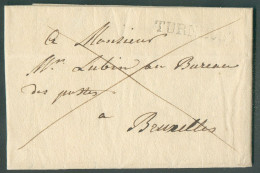 TURNHOUT
a Monsieur
Mr. Lubin au Bureau
des postes
a
Bruxelles